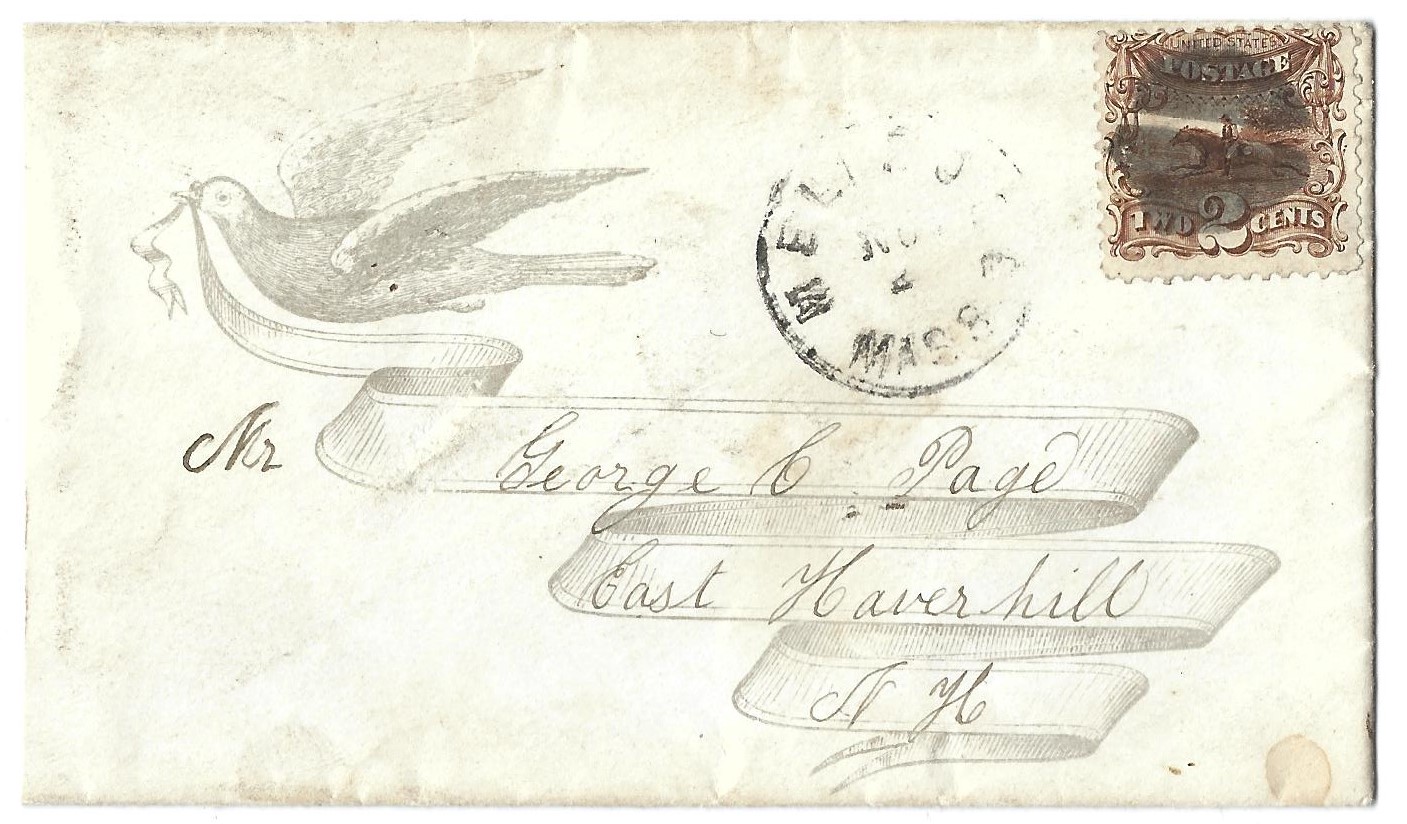 UNITED STATES
POSTAGE
TWO 2 CENTS
MASS
Mr George C Page
East Haverhill
N H